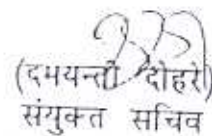 (दमयन्ती दोहरे)
संयुक्त सचिव